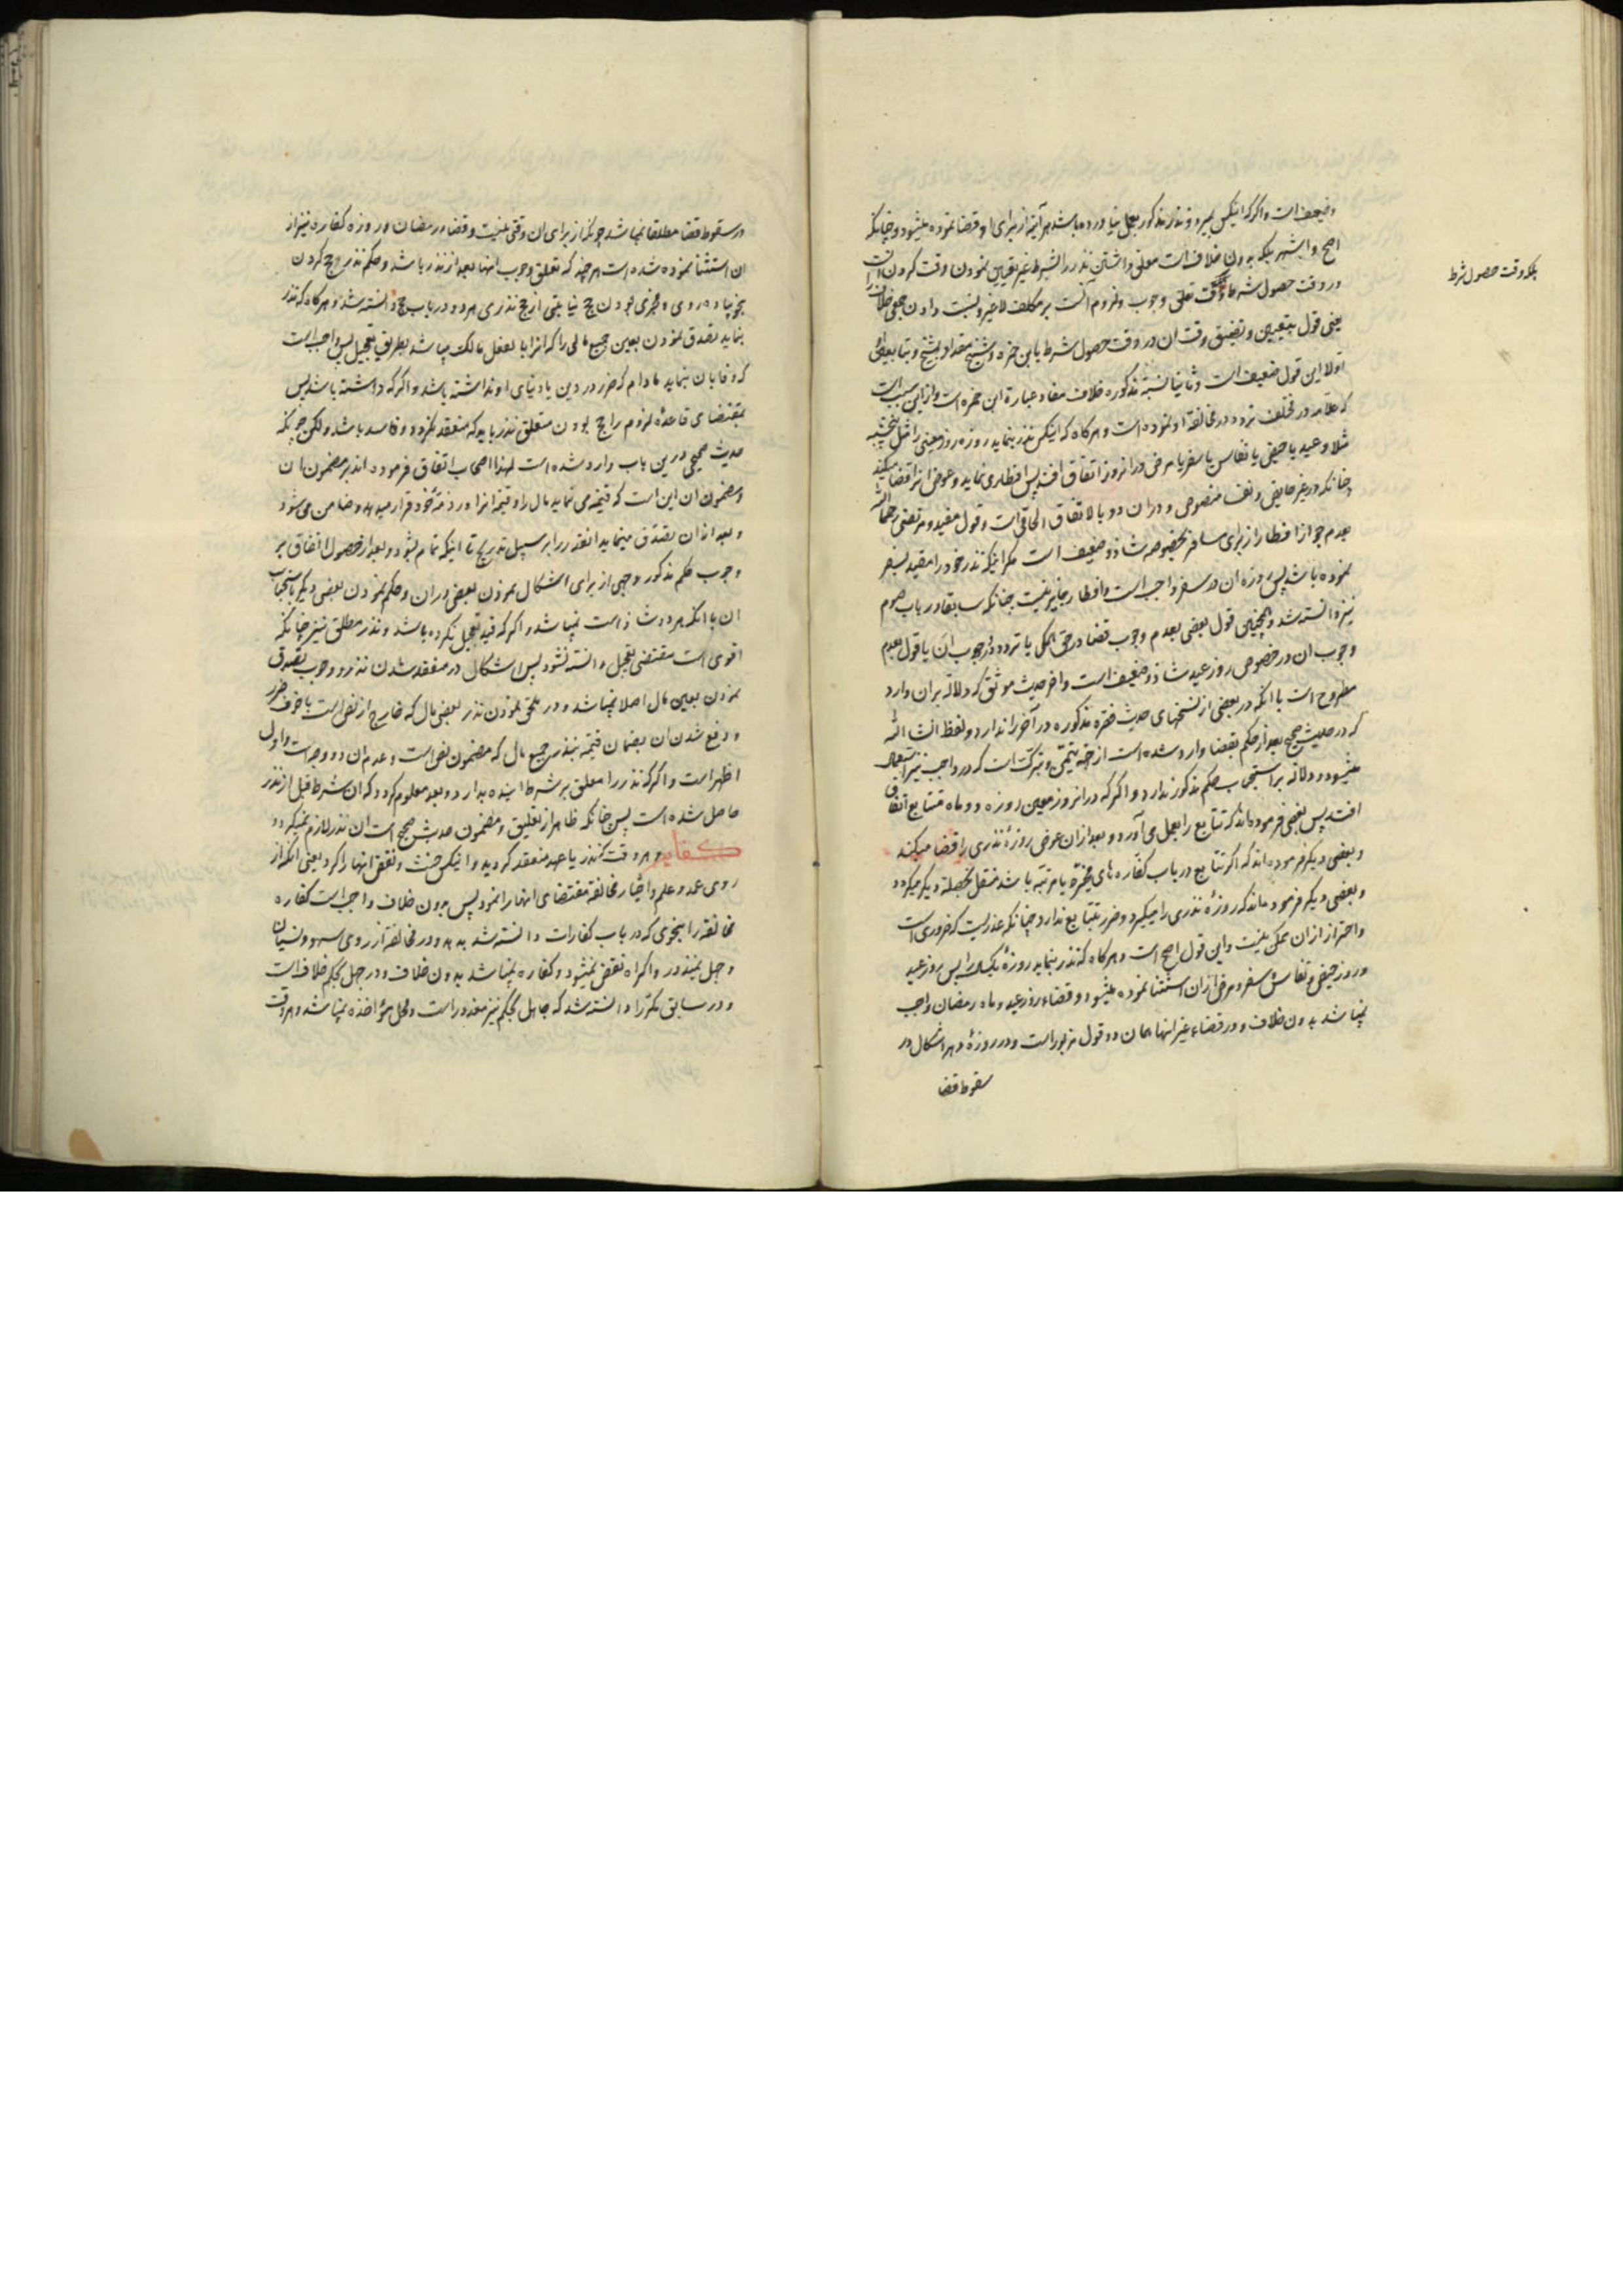 وضعیف است و اگر که اینکس بمیرد و نذر مذکور بعمل نیاورده باشد هر آینه از برای او قضا نموده میشود و چنانکه
اصح و اشهر بلکه بدون خلاف است معلق داشتن نذر را بشرط غیر تعیین نمودن وقت کردن آنست
در وقت حصول شرط تعلق وجوب و لزوم آنست بر مکلف لا غیر و نسبت دادن جمعی خلاف را
بلکه وقت حصول شرط
یعنی قول بتعیین و تضییق وقت آن در وقت حصول شرط بابن حمزه و شیخ مقداد بشیخ و بتابعان
اولا این قول ضعیف است و ثانیا نسبة مذکوره خلاف مفاد عبارة ابن حمزه است و از این سبب است
که علامه در مختلف تردد در مخالفة او نموده است و هرگاه که اینکس نذر بنماید روزه روز معینی را مثل پنجشنبه
مثلا و عید یا حیض یا نفاس یا سفر یا مرض در آنروز اتفاق افتد پس افطار می نماید و عوض آنرا قضا میکند
چنانکه در غیر حایض و نفسا منصوص و در آن دو بالاتفاق الحاقی است و قول مفید و مرتضی رحمهما الله
بعدم جواز افطار از برای مسافر بخصوصه شاذ و ضعیف است مگر اینکه نذر خود را مقید بسفر
نموده باشد پس روزه آن در سفر واجب است و افطار جایز نیست چنانکه سابقا در باب صوم
نیز دانسته شد و همچنین قول بعضی بعدم وجوب قضا در حق الکل یا تردد در وجوب آن یا قول بعدم
وجوب آن در خصوص روز عید شاذ و ضعیف است و آخر حدیث موثق که دلالة بر آن دارد
مطروح است با آنکه در بعضی از نسخهای حدیث فقره مذکوره در آخر را ندارد و لفظ انشاء الله
که در حدیث صحیح بعد از حکم بقضا وارد شده است از جهة تیمن و تبرک است که در واجب نیز استعمال
میشود و دلالة بر استحباب حکم مذکور ندارد و اگر که در آنروز معین روزه دو ماه متتابع اتفاق
افتد پس بعضی فرموده‌اند که تتابع را بعمل می آورد و بعد از آن عوض روزهٔ نذری را قضا میکند
و بعضی دیگر فرموده‌اند که اگر تتابع در باب کفاره های مخیره یا مرتبه باشد منتقل بخصلة دیگر میگردد
و بعضی دیگر فرموده‌اند که روزهٔ نذری را میگیرد و ضرر بتتابع ندارد چنانکه عذریست که ضروری است
و احتراز از آن ممکن نیست و این قول اصح است و هرگاه که نذر بنماید روزهٔ یکسال را پس روز عید
و روز حیض و نفاس و سفر و مرض از آن استثنا نموده میشود و قضاء روز عید و ماه رمضان واجب
نمیباشد بدون خلاف و در قضاء غیر اینها همان دو قول مزبور است و در روزهٔ دهر اشکال در
سقوط قضا
در سقوط قضا مطلقا نمیباشد چونکه از برای آن وقتی نیست و قضاء رمضان و روزه کفاره نیز از
آن استثنا نموده شده است هر چند که تعلق وجوب اینها بعد از نذر باشد و حکم نذر حج کردن
بنحو پیاده روی و مجزی بودن حج نیابتی از حج نذری هر دو در باب حج دانسته شد و هرگاه که نذر
بنماید تصدق نمودن بعین جمیع مالی را که آنرا بالفعل مالک میباشد بطریق تعجیل پس واجب است
که وفا بآن بنماید مادام که ضرر در دین یا دنیای او نداشته باشد و اگر که داشته باشد پس
بمقتضای قاعدهٔ لزوم راجح بودن متعلق نذر باید که منعقد نگردد و فاسد باشد ولکن چونکه
حدیث صحیحی درین باب وارد شده است لهذا اصحاب اتفاق فرموده اند بر مضمون آن
و مضمون آن این است که قیمت می نماید مال را و قیمة آنرا در ذمهٔ خود قرار میدهد و ضامن می شود
و بعد از آن تصدق مینماید آنقدر را بر سبیل تدریج تا اینکه تمام بشود و بعد از حصول اتفاق بر
وجوب حکم مذکور وجهی از برای اشکال نمودن بعضی در آن و حکم نمودن بعضی دیگر باستحباب
آن با آنکه هر دو شاذ است نمیباشد و اگر که قید تعجیل نکرده باشد و نذر مطلق نیز چنانکه
اقوی است مقتضی تعجیل دانسته نشود پس اشکال در منعقد شدن نذر و وجوب تصدق
نمودن بعین مال اصلا نمیباشد و در ملحق نمودن نذر بعضی مال که خارج از نص است با خوف ضرر
و رفع شدن آن بضمان قیمة بنذر جمیع مال که مضمون نص است و عدم آن دو وجه است و اول
اظهر است و اگر که نذر را معلق بر شرط آینده بدارد و بعد معلوم گردد که آن شرط قبل از نذر
حاصل شده است پس چنانکه ظاهر از تعلیق و مضمون حدیث صحیح است آن نذر لازم نمیگردد
کفایة و هر وقت که نذر یا عهد منعقد گردید و اینکس حنث و نقض اینها را کرد یعنی آنکه از
روی عمد و علم و اختیار مخالفة مقتضای اینها را نمود پس بدون خلاف واجب است کفاره
مخالفة را بنحوی که در باب کفارات دانسته شد بدهد و در مخالفة از روی سهو و نسیان
و جهل بمنذور و اکراه نقض نمیشود و کفاره نمیباشد بدون خلاف و در جهل بحکم خلاف است
و در سابق مکررا دانسته شد که جاهل بحکم نیز معذور است و محل مؤاخذه نمیباشد و هر وقت